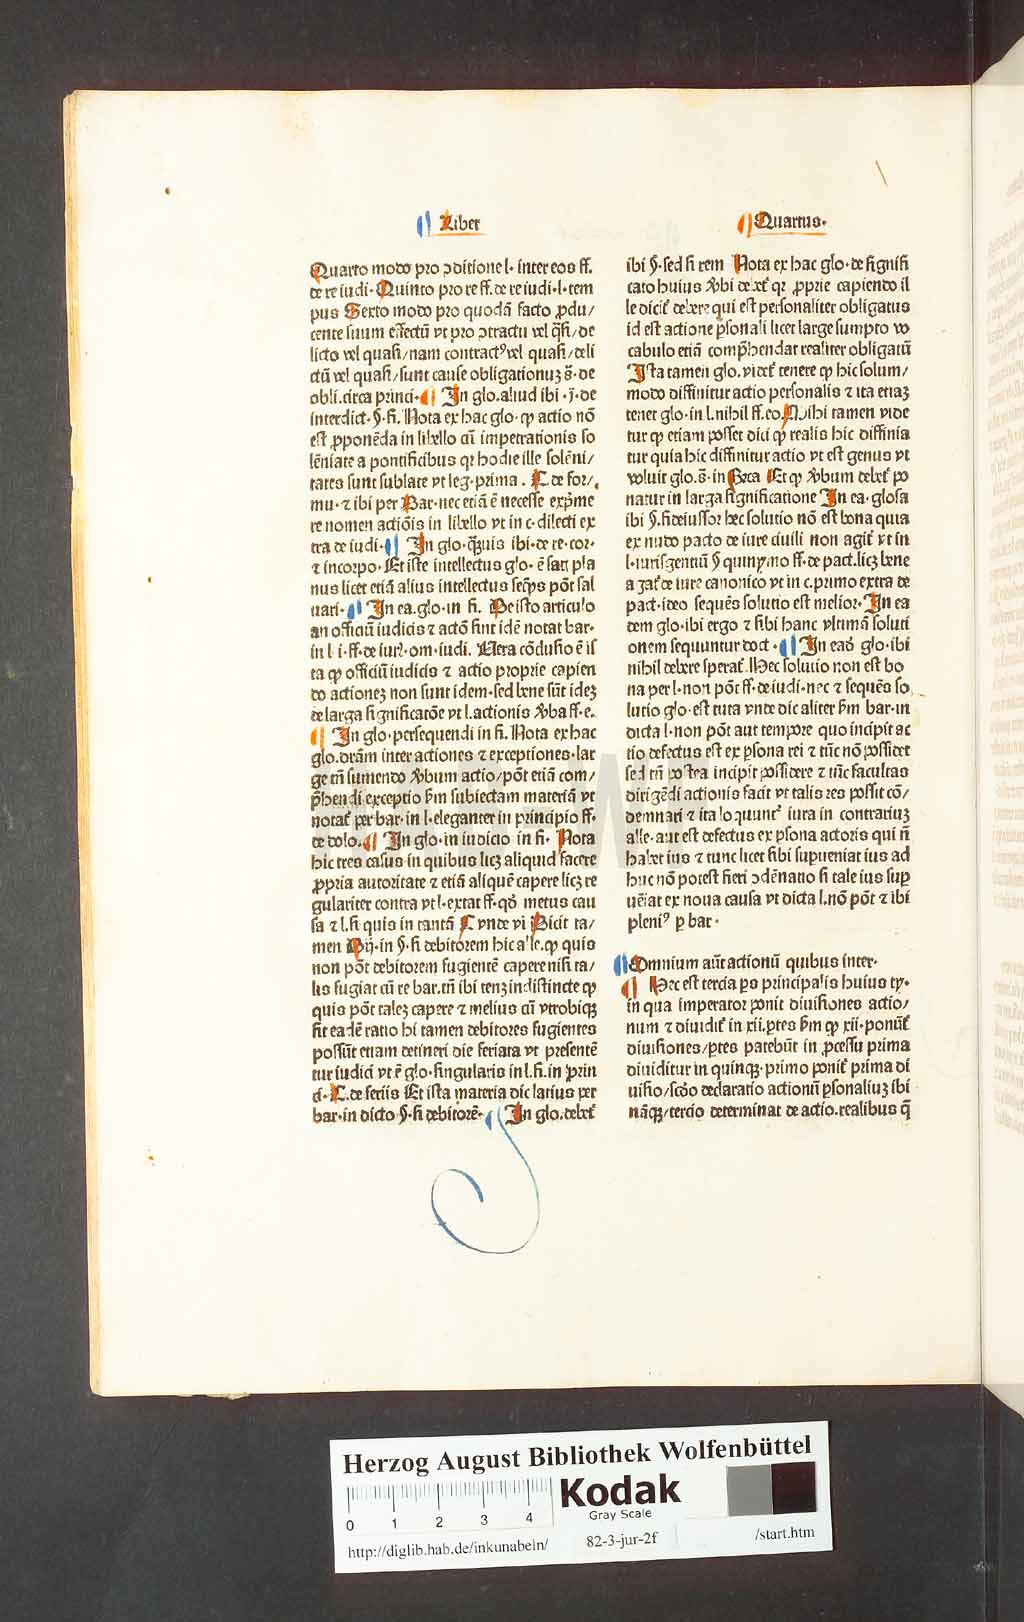 Liber
Quartus.
Quarto modo pro ꝯditione l. inter eos ff.
de re iudi. Quinto pro re ff. de re iudi. l. tem
pus Sexto modo pro quodā facto ꝓdu/
cente suum effectū vt pro ꝯtractu vel q̄si/de
licto vel quasi/nam contractꝰ vel quasi/deli
ctū vel quasi/sunt cause obligationuꝫ s̄. de
obli. circa princi. In glo. aliud ibi. j. de
interdict. §. fi. Nota ex hac glo. ꝙ actio nō
est ꝓponēda in libello cū impetrationis so
lēnitate a pontificibus qꝛ hodie ille solēni/
tates sunt sublate vt leg. prima. C. de for/
mu. ⁊ ibi per Bar. nec etiā ē necesse exp̄me
re nomen actiōis in libello vt in c. dilecti ex
tra de iudi. In glo. q̄uis ibi. de re. cor.
⁊ incorpo. Et iste intellectus glo. ē satꝭ pla
nus licet etiā alius intellectus seq̄ns pōt sal
uari. In ea. glo. in fi. De isto articulo
an officiū iudicis ⁊ actō sint idē notat bar.
in l. i. ff. de iurꝭ. om. iudi. Vera cōclusio ē is
ta ꝙ officiū iudicis ⁊ actio proprie capien
do actioneꝫ non sunt idem. sed bene sūt ideꝫ
de larga significatōe vt l. actionis v̄ba ff. e.
In glo. persequendi in fi. Nota ex hac
glo. dr̄am inter actiones ⁊ exceptiones. lar
ge tn̄ sumendo v̄bum actio/pōt etiā com/
p̄hendi exceptio ẜm subiectam materiā vt
notat᷑ per bar. in l. eleganter in principio ff.
de dolo. In glo. in iudicio in fi. Nota
hic tres casus in quibus licꝫ aliquid facere
ꝓpria autoritate ⁊ etiā aliquē capere licꝫ re
gulariter contra vt l. extat ff. qđ metus cau
sa ⁊ l. si quis in tantā C. vnde vi Dicit ta/
men Bar. in §. si debitorem hic alle. ꝙ quis
non pōt debitorem fugientē capere nisi ta/
lis fugiat cū re bar. tn̄ ibi tenꝫ indistincte ꝙ
quis pōt taleꝫ capere ⁊ melius cū vtrobiqꝫ
sit eadē ratio hi tamen debitores fugientes
possūt etiam detineri die feriata vt presentē
tur iudici vt ē glo. singularis in l. fi. in prin
ci. C. de feriis Et ista materia dic latius per
bar. in dicto §. si debitorē. In glo. debet᷑
ibi §. sed si rem Nota ex hac glo. de signifi
cato huius v̄bi debet᷑ qꝛ ꝓprie capiendo il
le dicit᷑ debere qui est personaliter obligatus
id est actione ꝑsonali licet large sumpto vo
cabulo etiā comp̄hendat realiter obligatū
Ista tamen glo. videt᷑ tenere ꝙ hic solum/
modo diffinitur actio personalis ⁊ ita etiaꝫ
tenet glo. in l. nihil ff. eo. Mihi tamen vide
tur ꝙ etiam posset dici ꝙ realis hic diffinia
tur quia hic diffinitur actio vt est genus vt
voluit glo. s̄. in Et ꝙ v̄bum debet᷑ po
natur in larga significatione In ea. glosa
ibi §. fideiussor hec solutio nō est bona quia
ex nudo pacto de iure ciuili non agit᷑ vt in
l. iurisgentiū § quinymo ff. de pact. licꝫ bene
agat᷑ de iure canonico vt in c. primo extra de
pact. ideo sequēs solutio est melior. In ea
dem glo. ibi ergo ⁊ sibi hanc vltimā soluti
onem sequuntur doct. In eadē glo. ibi
nihil debere sperat᷑. Hec solutio non est bo
na per l. non pōt ff. de iudi. nec ⁊ sequēs so
lutio glo. est tuta vnde dic aliter ẜm bar. in
dicta l. non pōt aut tempore quo incipit ac
tio defectus est ex ꝑsona rei ⁊ tūc nō possidet
sed tn̄ postea incipit possidere ⁊ tūc facultas
dirigēdi actionis facit vt talis res possit cō/
demnari ⁊ ita loquunt᷑ iura in contrariuꝫ
alle. aut est defectus ex ꝑsona actoris qui n̄
habet ius ⁊ tunc licet sibi superueniat ius ad
huc nō potest fieri ꝯdēnatio si tale ius suꝑ
uēiat ex noua causa vt dicta l. nō pōt ⁊ ibi
pleniꝰ ꝑ bar.
Omnium aūt actionū quibus inter.
Hec est tercia ꝑs principalis huius ty.
in qua imperator ponit diuisiones actio/
num ⁊ diuidit᷑ in xii. ꝑtes ẜm ꝙ xii. ponūt᷑
diuisiones/ꝑtes patebūt in ꝓcessu prima
diuiditur in quinqꝫ. primo ponit᷑ prima di
uisio/scđo declaratio actionū ꝑsonaliuꝫ ibi
nāqꝫ/tercio determinat de actio. realibus q̄
Herzog August Bibliothek Wolfenbüttel
Kodak
Gray Scale
0 1 2 3 4
http://diglib.hab.de/inkunabeln/ 82-3-jur-2f /start.htm